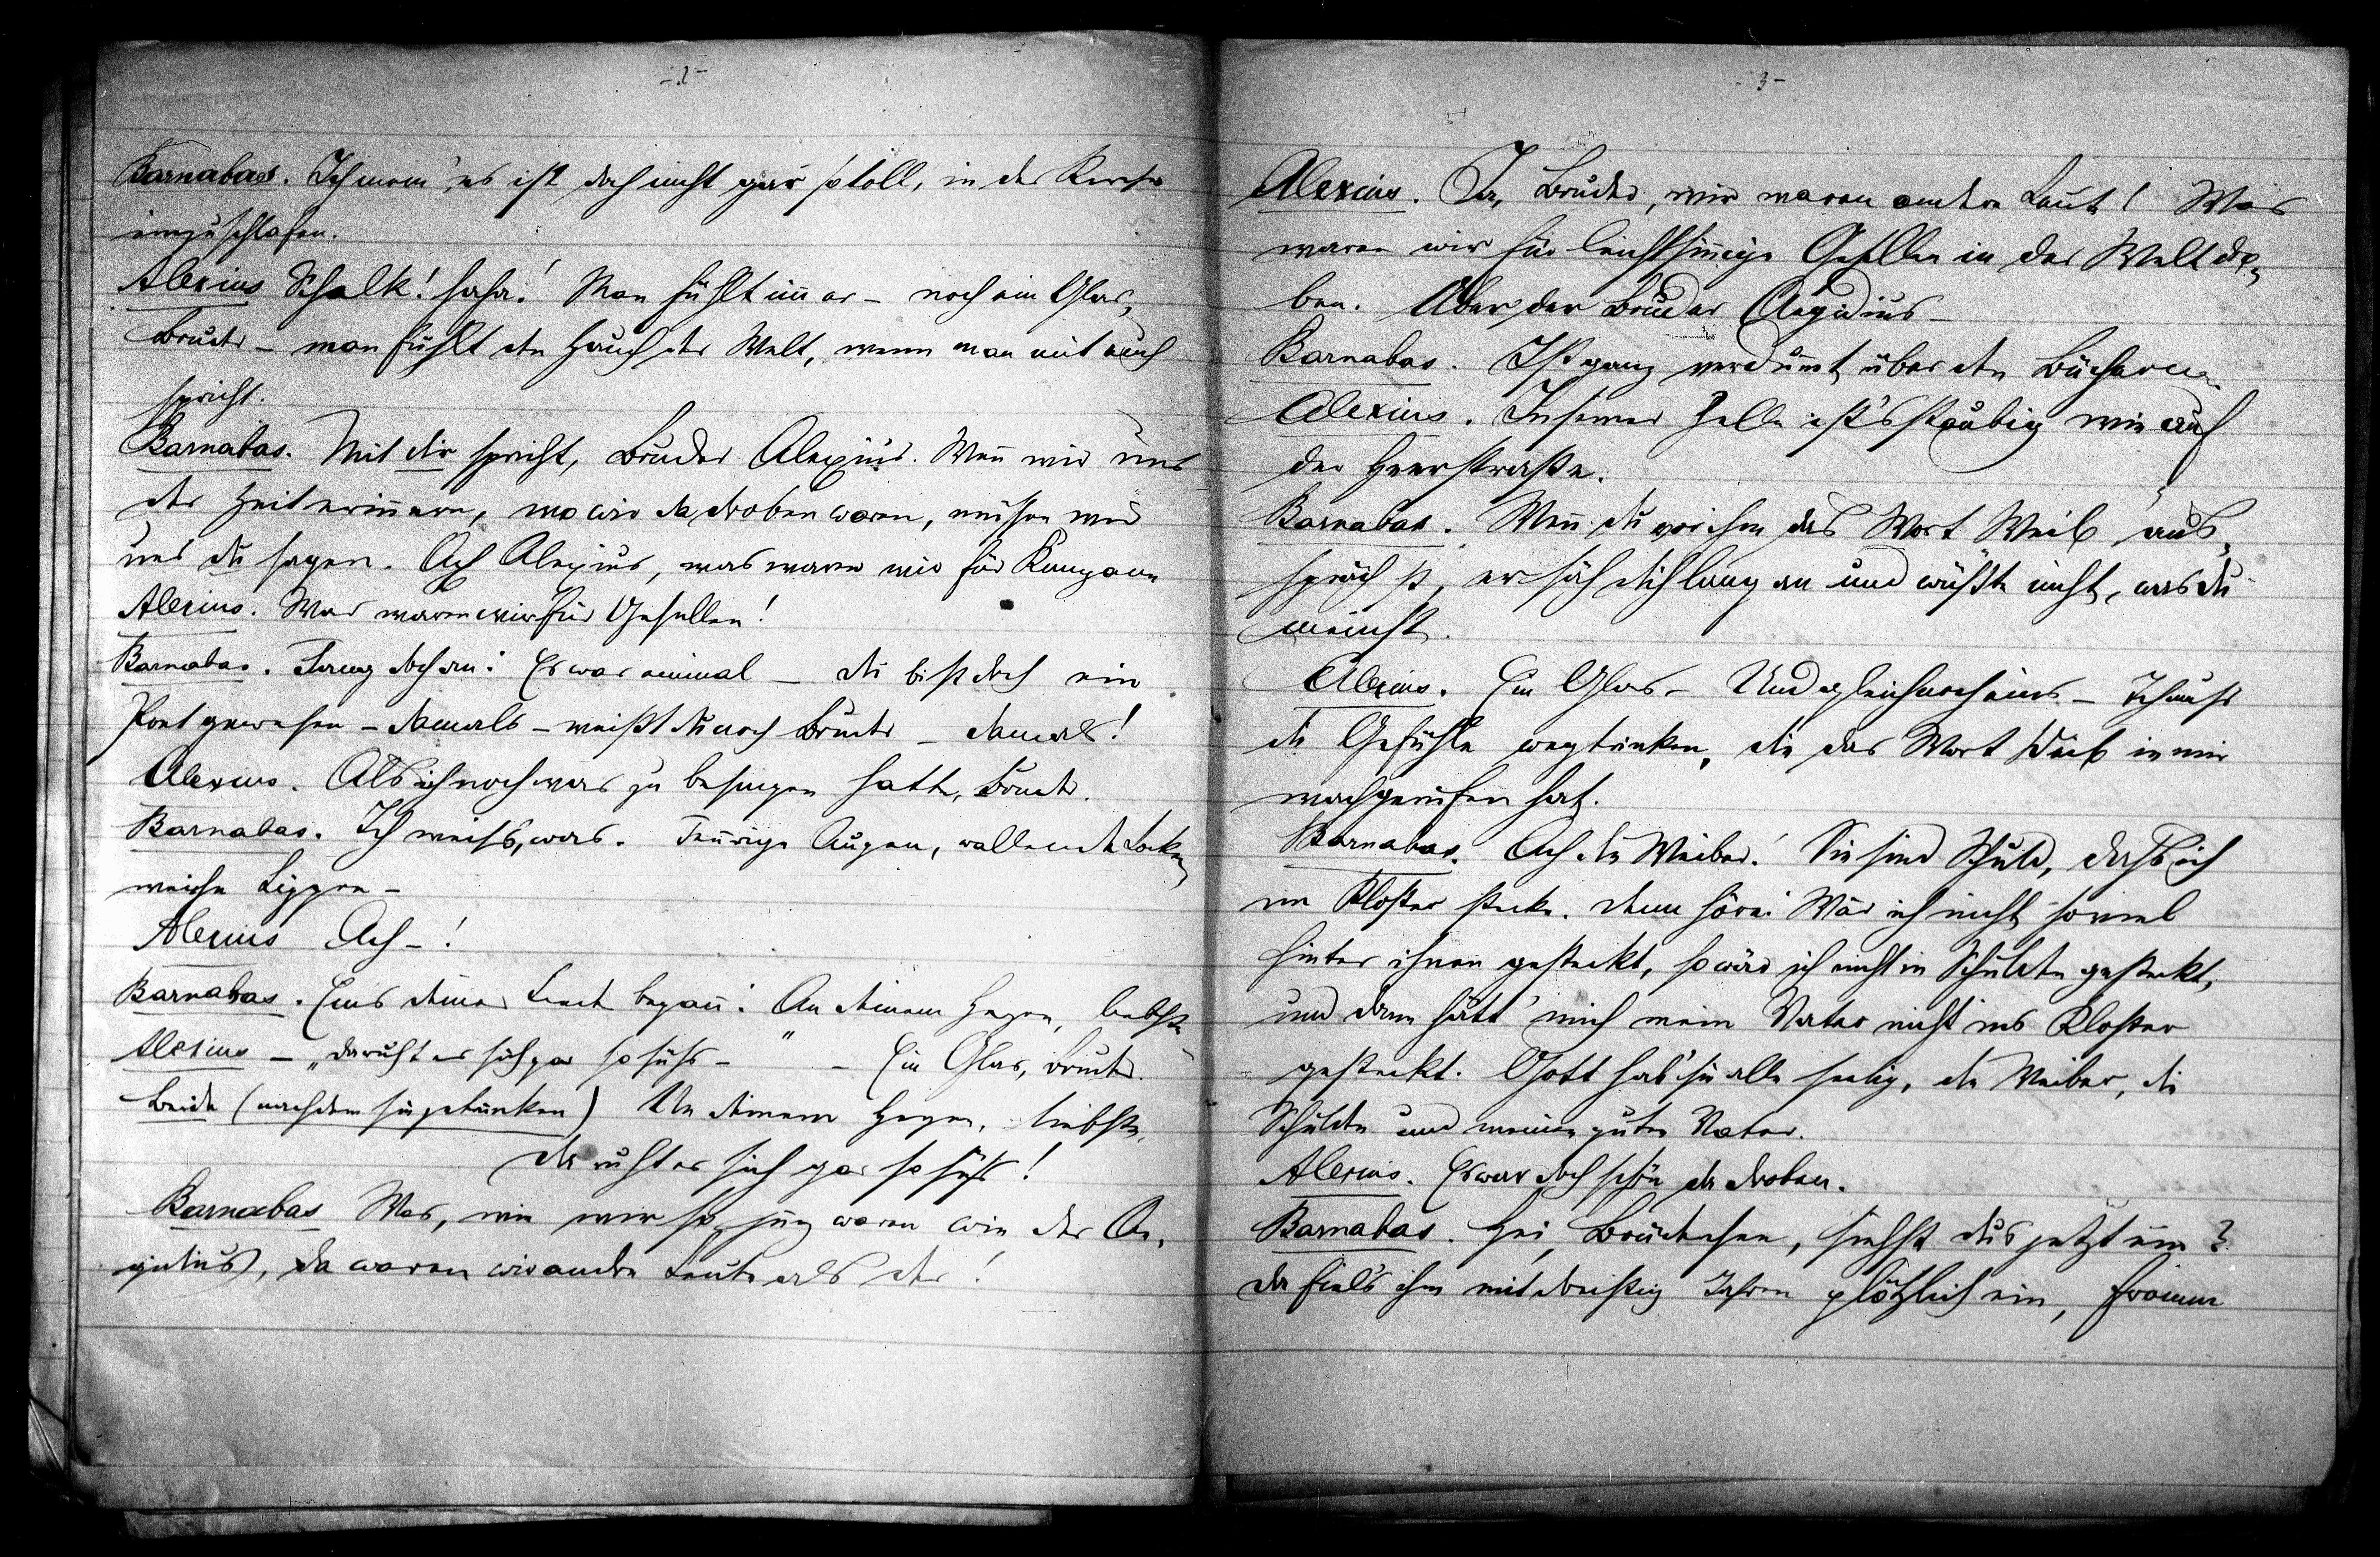 - 2 -
Barnabas. Ich mein', es ist doch nicht gar so toll, in der Kirche
einzuschlafen.
Alexius Schalk! haha! Man fühlt immer – noch ein Glas,
Bruder – man fühlt den Hauch der Welt, wenn man mit euch
spricht.
Barnabas. Mit dir spricht, Bruder Alexius. Wenn wir uns
der Zeit erinnern, wo wir da droben waren, müssen wir
uns du sagen. Ach Alexius, was waren wir für Kumpane
Alexius. Was waren wir für Gesellen!
Barnabas. Fang doch an: Es war einmal – du bist doch ein
Poet gewesen – damals – weißt du noch Bruder – damals!
Alexius. Als ich noch was zu besingen hatte, Bruder.
Barnabas. Ich weiss, was. Feurige Augen, wallende Locken,
weiche Lippen –
Alexius Ach – !
Barnabas. Eins deiner Lieder begann: An deinem Herzen, liebste
Alexius – „da ruht es sich gar so süss – " – Ein Glas, Bruder.
Beide (nachdem sie getrunken) An deinem Herzen, liebste,
da ruht es sich gar so süss!
Barnabas Was, wie wir so jung waren wie der Ae-
gidius, da waren wir andre Leute als der!
- 3 -
Alexius. Ja, Bruder, wir waren andere Leute! Was
waren wir für leichtsinnige Gesellen in der Welt dro-
ben. Aber der Bruder Aegidius –
Barnabas. Ist ganz verdummt über den Büchern
Alexius. In seiner Zelle ist's staubig wie auf
der Heerstraße.
Barnabas. Wenn du vor ihm das Wort Weib aus-
sprächst, er säh dich lang an und wüßte nicht, was du
meinst.
Alexius. Ein Glas – Und gleich noch eins – Ich muß
die Gefühle wegtrinken, die das Wort Weib in mir
wachgerufen hat.
Barnabas. Ach die Weiber! Sie sind Schuld, dass ich
im Kloster stecke. denn höre: Wär ich nicht soviel
hinter ihnen gesteckt, so wär ich nicht in Schulden gesteckt,
und dann hätt' mich mein Vater nicht ins Kloster
gesteckt. Gott hab' sie alle seelig, die Weiber, die
Schulden und meinen guten Vater.
Alexius. Es war doch schön da droben.
Barnabas. Hei, Brüderchen, siehst du's jetzt ein?
da fiel's ihm mit dreißig Jahren plötzlich ein, fromm